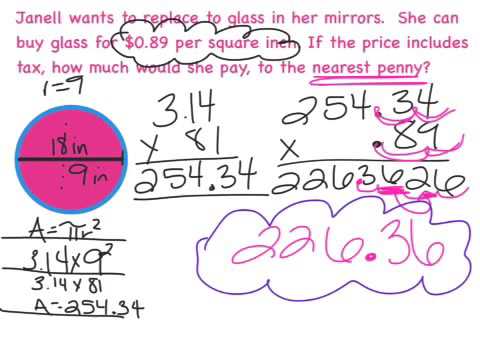 Janell wants to replace to glass in her mirrors. She can
buy glass for $0.89 per square inch. If the price includes
tax, how much would she pay, to the nearest penny?
r=9
18in
9in
A=πr²
3.14×9²
3.14×81
A=254.34
3.14
× 81
254.34
254.34
× .89
226.3626
226.36